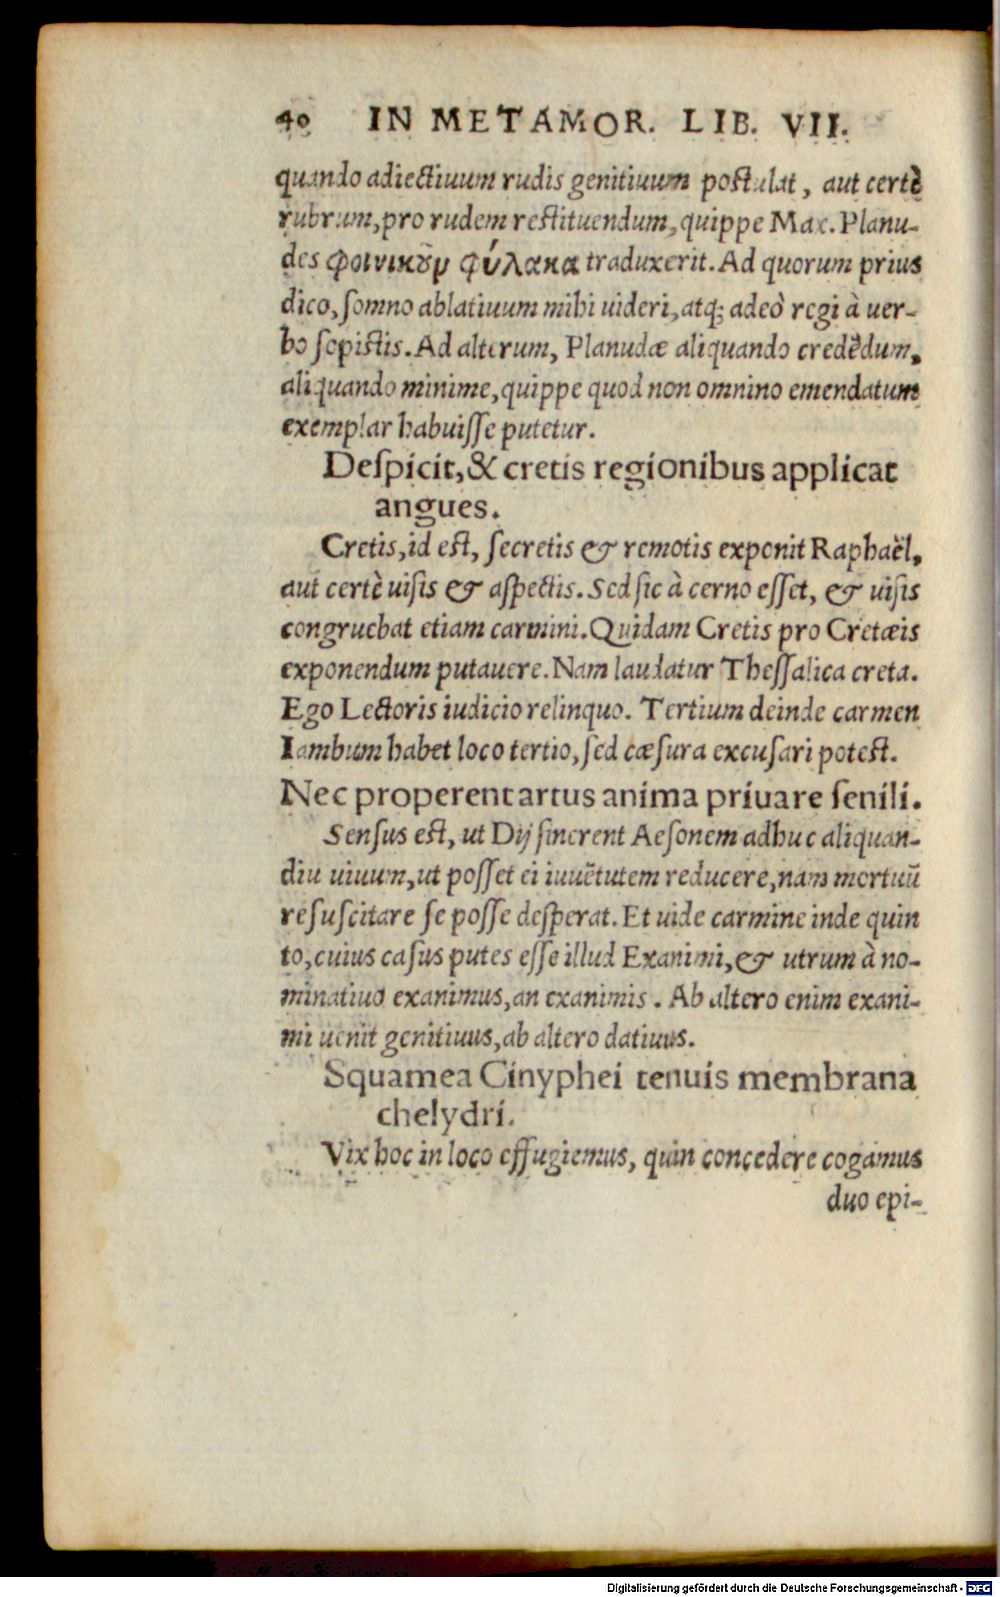 40 IN METAMOR. LIB. VII.
quando adiectiuum rudis genitiuum postulat, aut certè
rubrum, pro rudem restituendum, quippe Max. Planu-
des φοινικοῦμ φύλακα traduxerit. Ad quorum prius
dico, somno ablatiuum mihi uideri, atq; adeò regi à uer-
bo sopistis. Ad alterum, Planudæ aliquando credēdum,
aliquando minime, quippe quod non omnino emendatum
exemplar habuisse putetur.
Despicit, & cretis regionibus applicat
angues.
Cretis, id est, secretis & remotis exponit Raphaël,
aut certè uisis & aspectis. Sed sic à cerno esset, & uisis
congruebat etiam carmini. Quidam Cretis pro Cretæis
exponendum putauere. Nam laudatur Thessalica creta.
Ego Lectoris iudicio relinquo. Tertium deinde carmen
Iambum habet loco tertio, sed cæsura excusari potest.
Nec properent artus anima priuare senili.
Sensus est, ut Dij sinerent Aesonem adhuc aliquan-
diu uiuum, ut posset ei iuuētutem reducere, nam mortuū
resuscitare se posse desperat. Et uide carmine inde quin
to, cuius casus putes esse illud Exanimi, & utrum à no-
minatiuo exanimus, an exanimis. Ab altero enim exani-
mi uenit genitiuus, ab altero datiuus.
Squamea Cinyphei tenuis membrana
chelydri.
Vix hoc in loco effugiemus, quin concedere cogamus
duo epi-
Digitalisierung gefördert durch die Deutsche Forschungsgemeinschaft - DFG